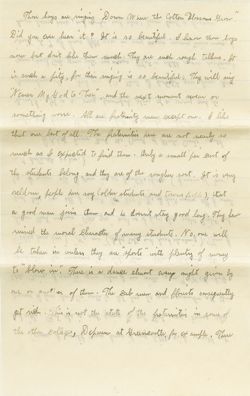 Those boys are singing "Down Where the Cotton Blossoms Grow."
Did you ever hear it? It is so beautiful. I know those boys
now but don't like them much. They are such rough fellows. It
is such a pity, for their singing is so beautiful. They will sing
"Nearer My God to Thee", and the next moment swear or
something worse. All are fraternity men except one. I like
that one best of all. The fraternities here are not nearly so
much as I expected to find them. Only a small per cent of
the students belong and they are of the rougher sort. It is very
seldom, people here say (other students and townspeople) that
a good man joins them, and he doesn't stay good long. They have
ruined the moral character of many students. No one will
be taken in unless they are "sports" with plenty of money
to "blow in". There is a dance almost every night given by
one or another of them. The club men and flunks consequently
get rich. This is not the state of the fraternities in some of
the other colleges, Depauw at Greencastle, for example. There